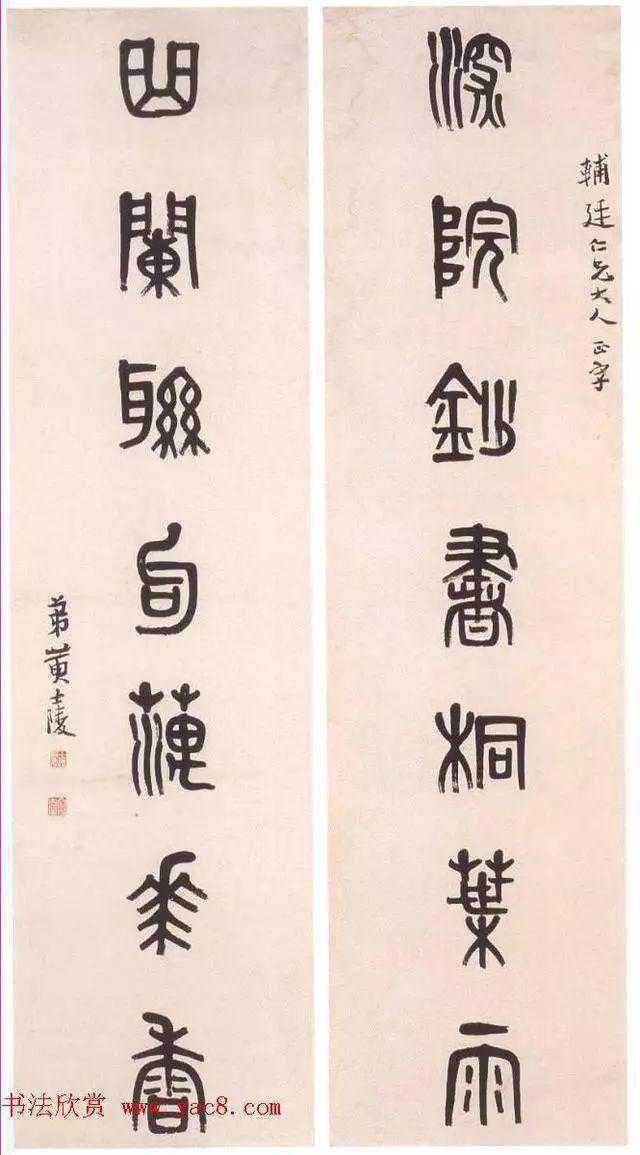 輔廷仁兄大人正字
深院鈔書桐葉雨
曲闌聯句蕅華香
弟黃士陵
书法欣赏 www.yac8.com